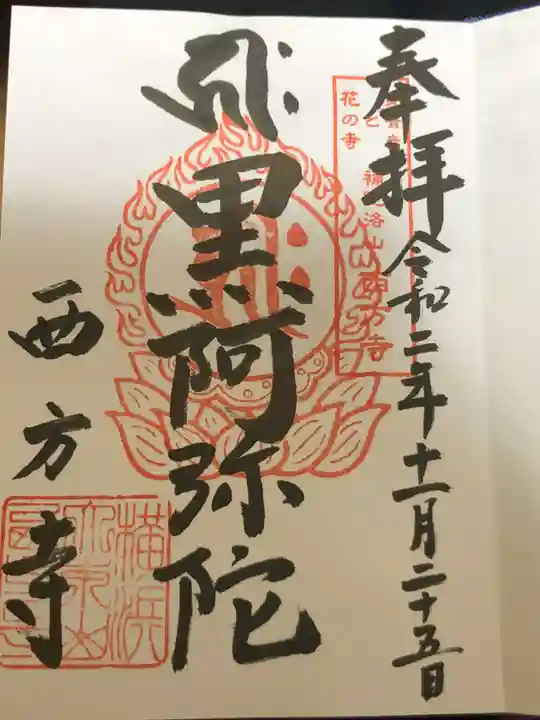 奉拝
令和二年十一月二十五日
花の寺
補陀洛山
西方寺
黒阿弥陀
西方寺
横浜